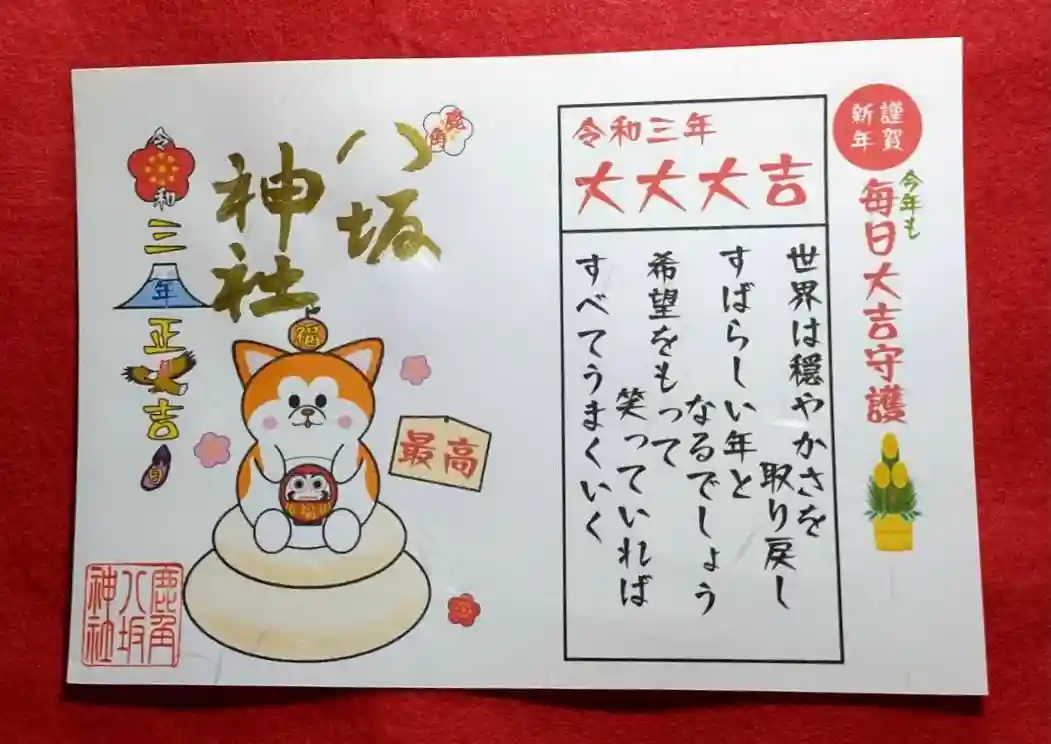 謹賀
新年
今年も
毎日大吉守護
令和三年
大大大吉
世界は穏やかさを
取り戻し
すばらしい年と
なるでしょう
希望をもって
笑っていれば
すべてうまくいく
鹿角
八坂
神社
令和三年正大吉日
福
最高
福
鹿角
八坂
神社